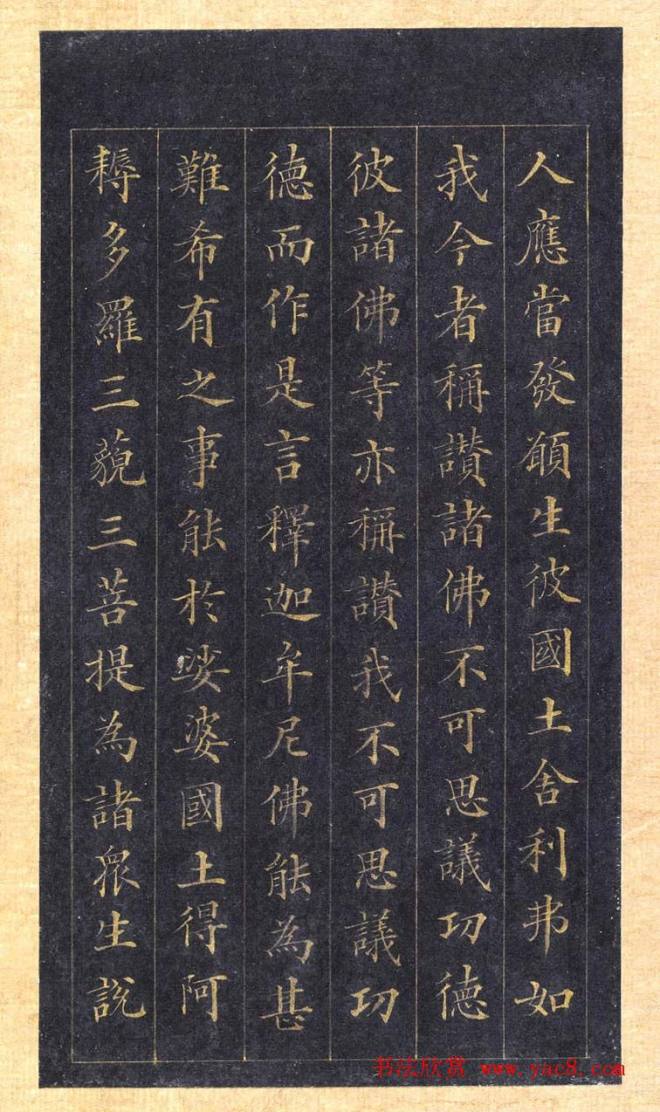 人應當發願生彼國土舍利弗如
我今者稱讚諸佛不可思議功德
彼諸佛等亦稱讚我不可思議功
德而作是言釋迦牟尼佛能為甚
難希有之事能於娑婆國土得阿
耨多羅三藐三菩提為諸眾生說
书法欣赏 www.yac8.com